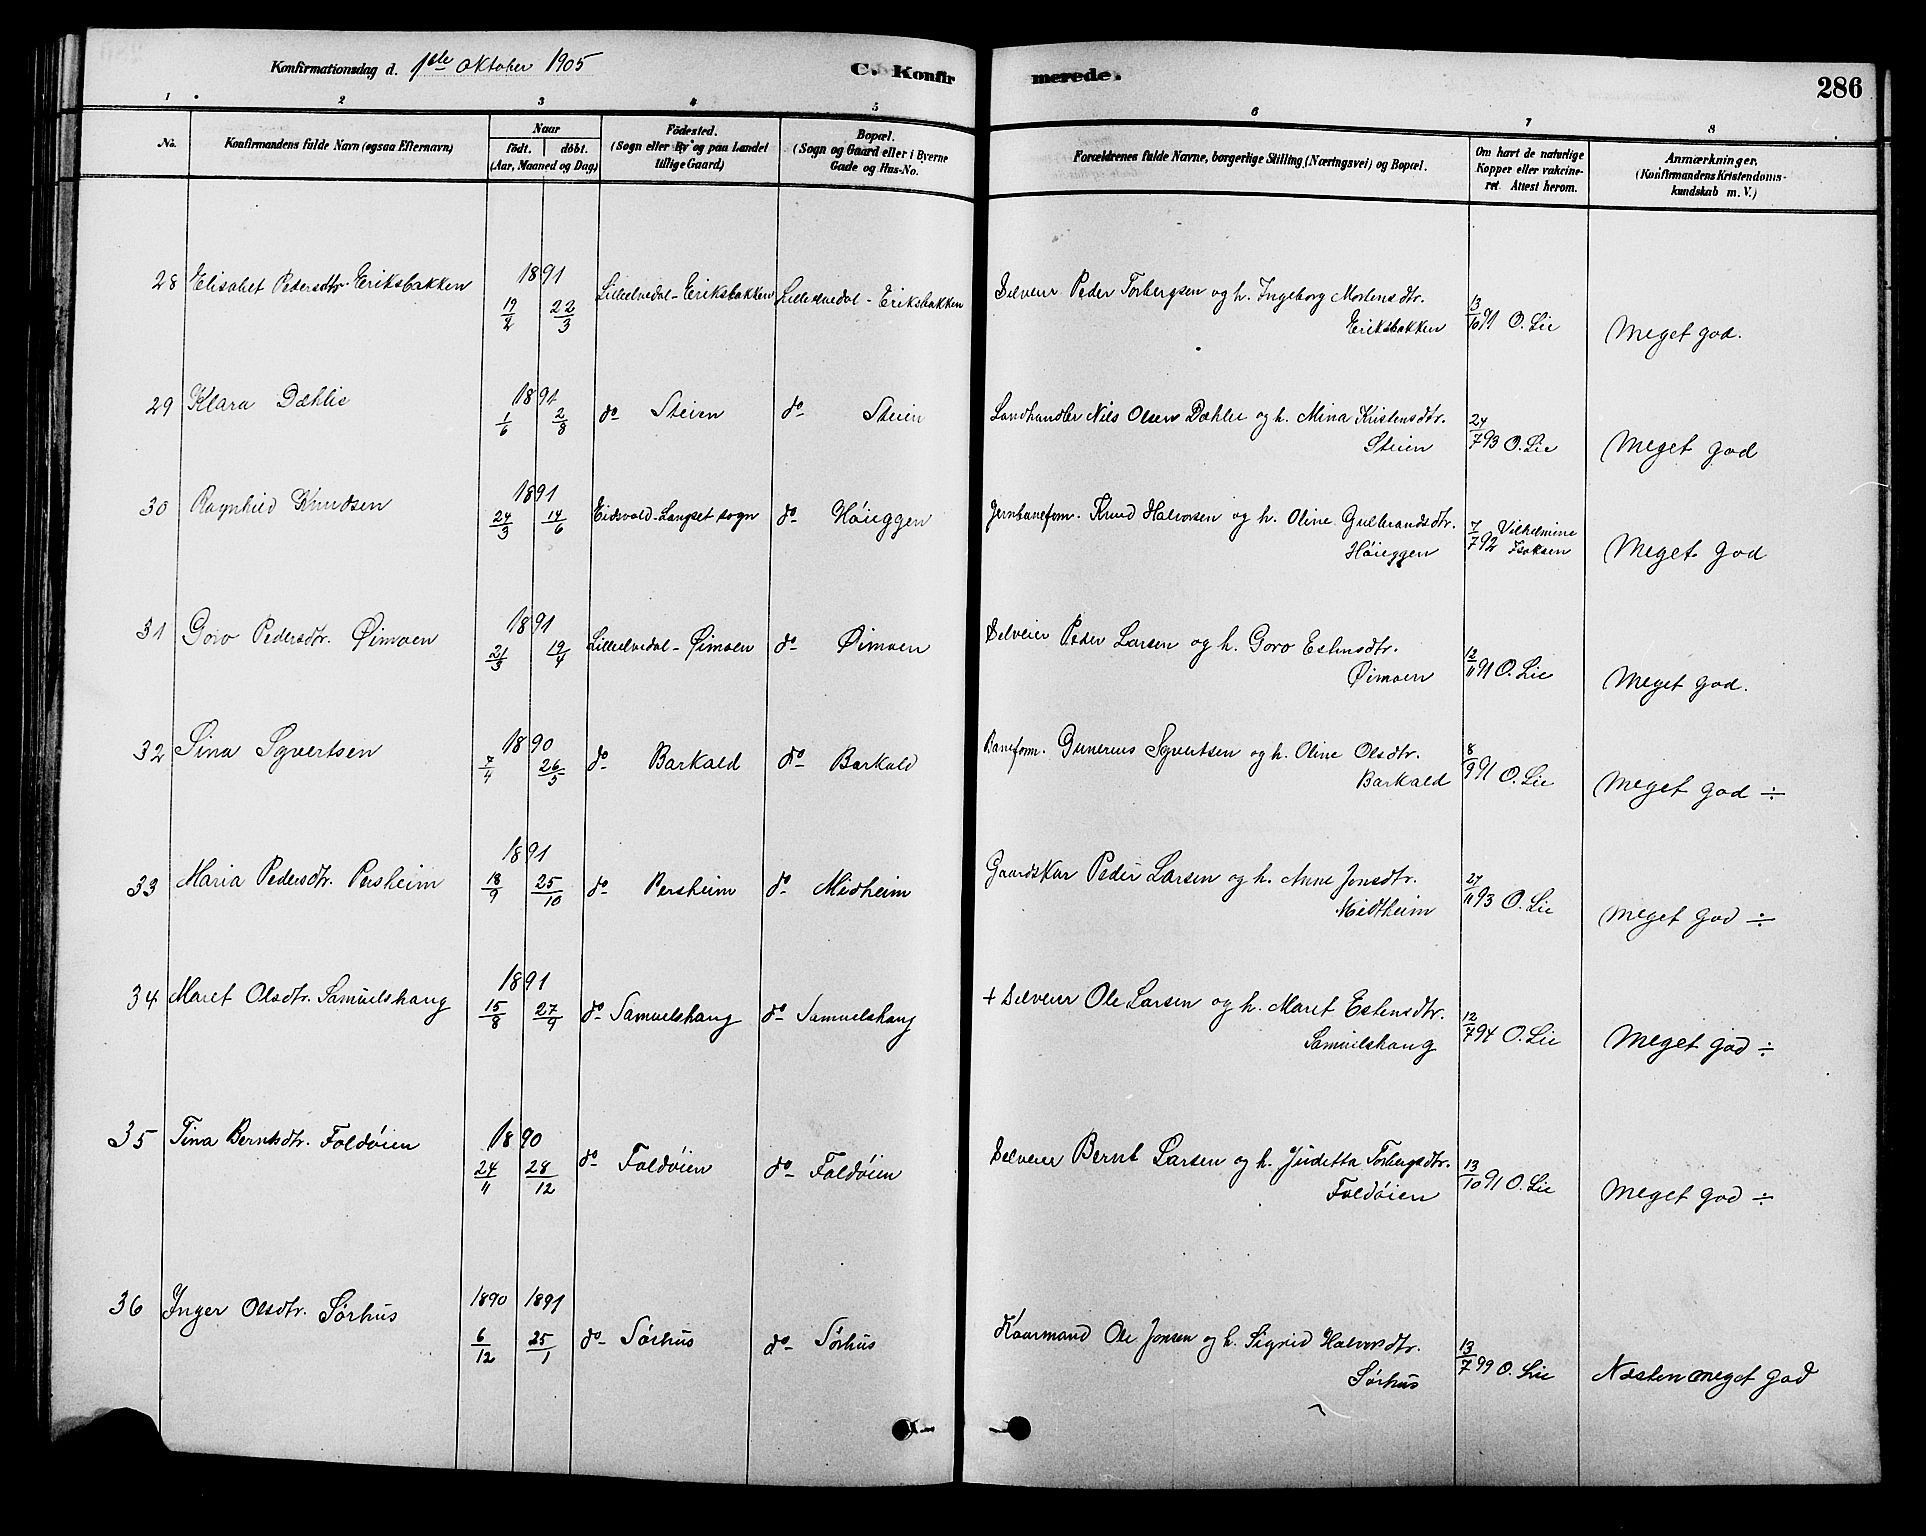 Konfirmationsdag d. 1ste Oktober 1905
C. Konfirmerede.
286
1 2 3 4 5 6 7 8
No.
Konfirmandens fulde Navn (ogsaa Efternavn)
Naar
födt. döbt.
(Aar, Maaned og Dag)
Födested.
(Sogn eller By og paa Landet
tillige Gaard)
Bopæl.
(Sogn og Gaard eller i Byerne
Gade og Hus-No.
Forældrenes fulde Navne, borgerlige Stilling (Næringsvei) og Bopæl.
Om havt de naturlige
Kopper eller vakcine-
ret. Attest herom.
Anmærkninger.
(Konfirmandens Kristendoms-
kundskab m. V.)
28 Elisabet Pedersdtr. Eriksbakken 1891 19/2 22/3 Lilleelvedal - Eriksbakken Lilleelvedal - Eriksbakken Selveier Peder Torbergsen og h. Ingeborg Mortensdtr.
Eriksbakken 13/10 91 O. Lie Meget god.
29 Klara Dæhlie 1891 1/6 2/8 do Steien do Steien Landhandler Nils Olsen Dæhlie og h. Mina Kristensdtr.
Steien 24/7 93 O. Lie Meget god
30 Ragnhild Knudsen 1891 24/3 14/6 Eidsvold - Langset sogn do Höieggen Jernbaneform. Knud Halvorsen og h. Oline Gulbrandsdtr.
Höieggen 7/7 92 Vilhelmine
Isaksen Meget god
31 Goro Pedersdtr. Øimoen 1891 21/3 19/4 Lilleelvedal - Øimoen do Øimoen Selveier Peder Larsen og h. Goro Estensdtr.
Øimoen 12/11 91 O. Lie Meget god.
32 Sina Syvertsen 1890 7/4 26/5 do Barkald do Barkald Baneform. Gunerius Syvertsen og h. Oline Olsdtr.
Barkald 8/9 91 O. Lie Meget god ÷
33 Maria Pedersdtr. Persheim 1891 18/9 25/10 do Persheim do Midheim Gaardskar Peder Larsen og h. Anne Jonsdtr.
Midtheim 27/11 93 O. Lie Meget god ÷
34 Maret Olsdtr. Samuelshaug 1891 15/8 27/9 do Samuelshaug do Samuelshaug + Selveier Ole Larsen og h. Maret Estensdtr.
Samuelshaug 12/7 94 O. Lie Meget god ÷
35 Tina Berntsdtr. Foldöien 1890 24/11 28/12 do Foldöien do Foldöien Selveier Bernt Larsen og h. Juditta Torbergsdtr.
Foldöien 13/10 91 O. Lie Meget god ÷
36 Inger Olsdtr. Sörhus 1890 1891 6/12 25/1 do Sörhus do Sörhus Kaarmand Ole Jonsen og h. Sigrid Halvorsdtr.
Sörhus 13/7 99 O. Lie Næsten meget god